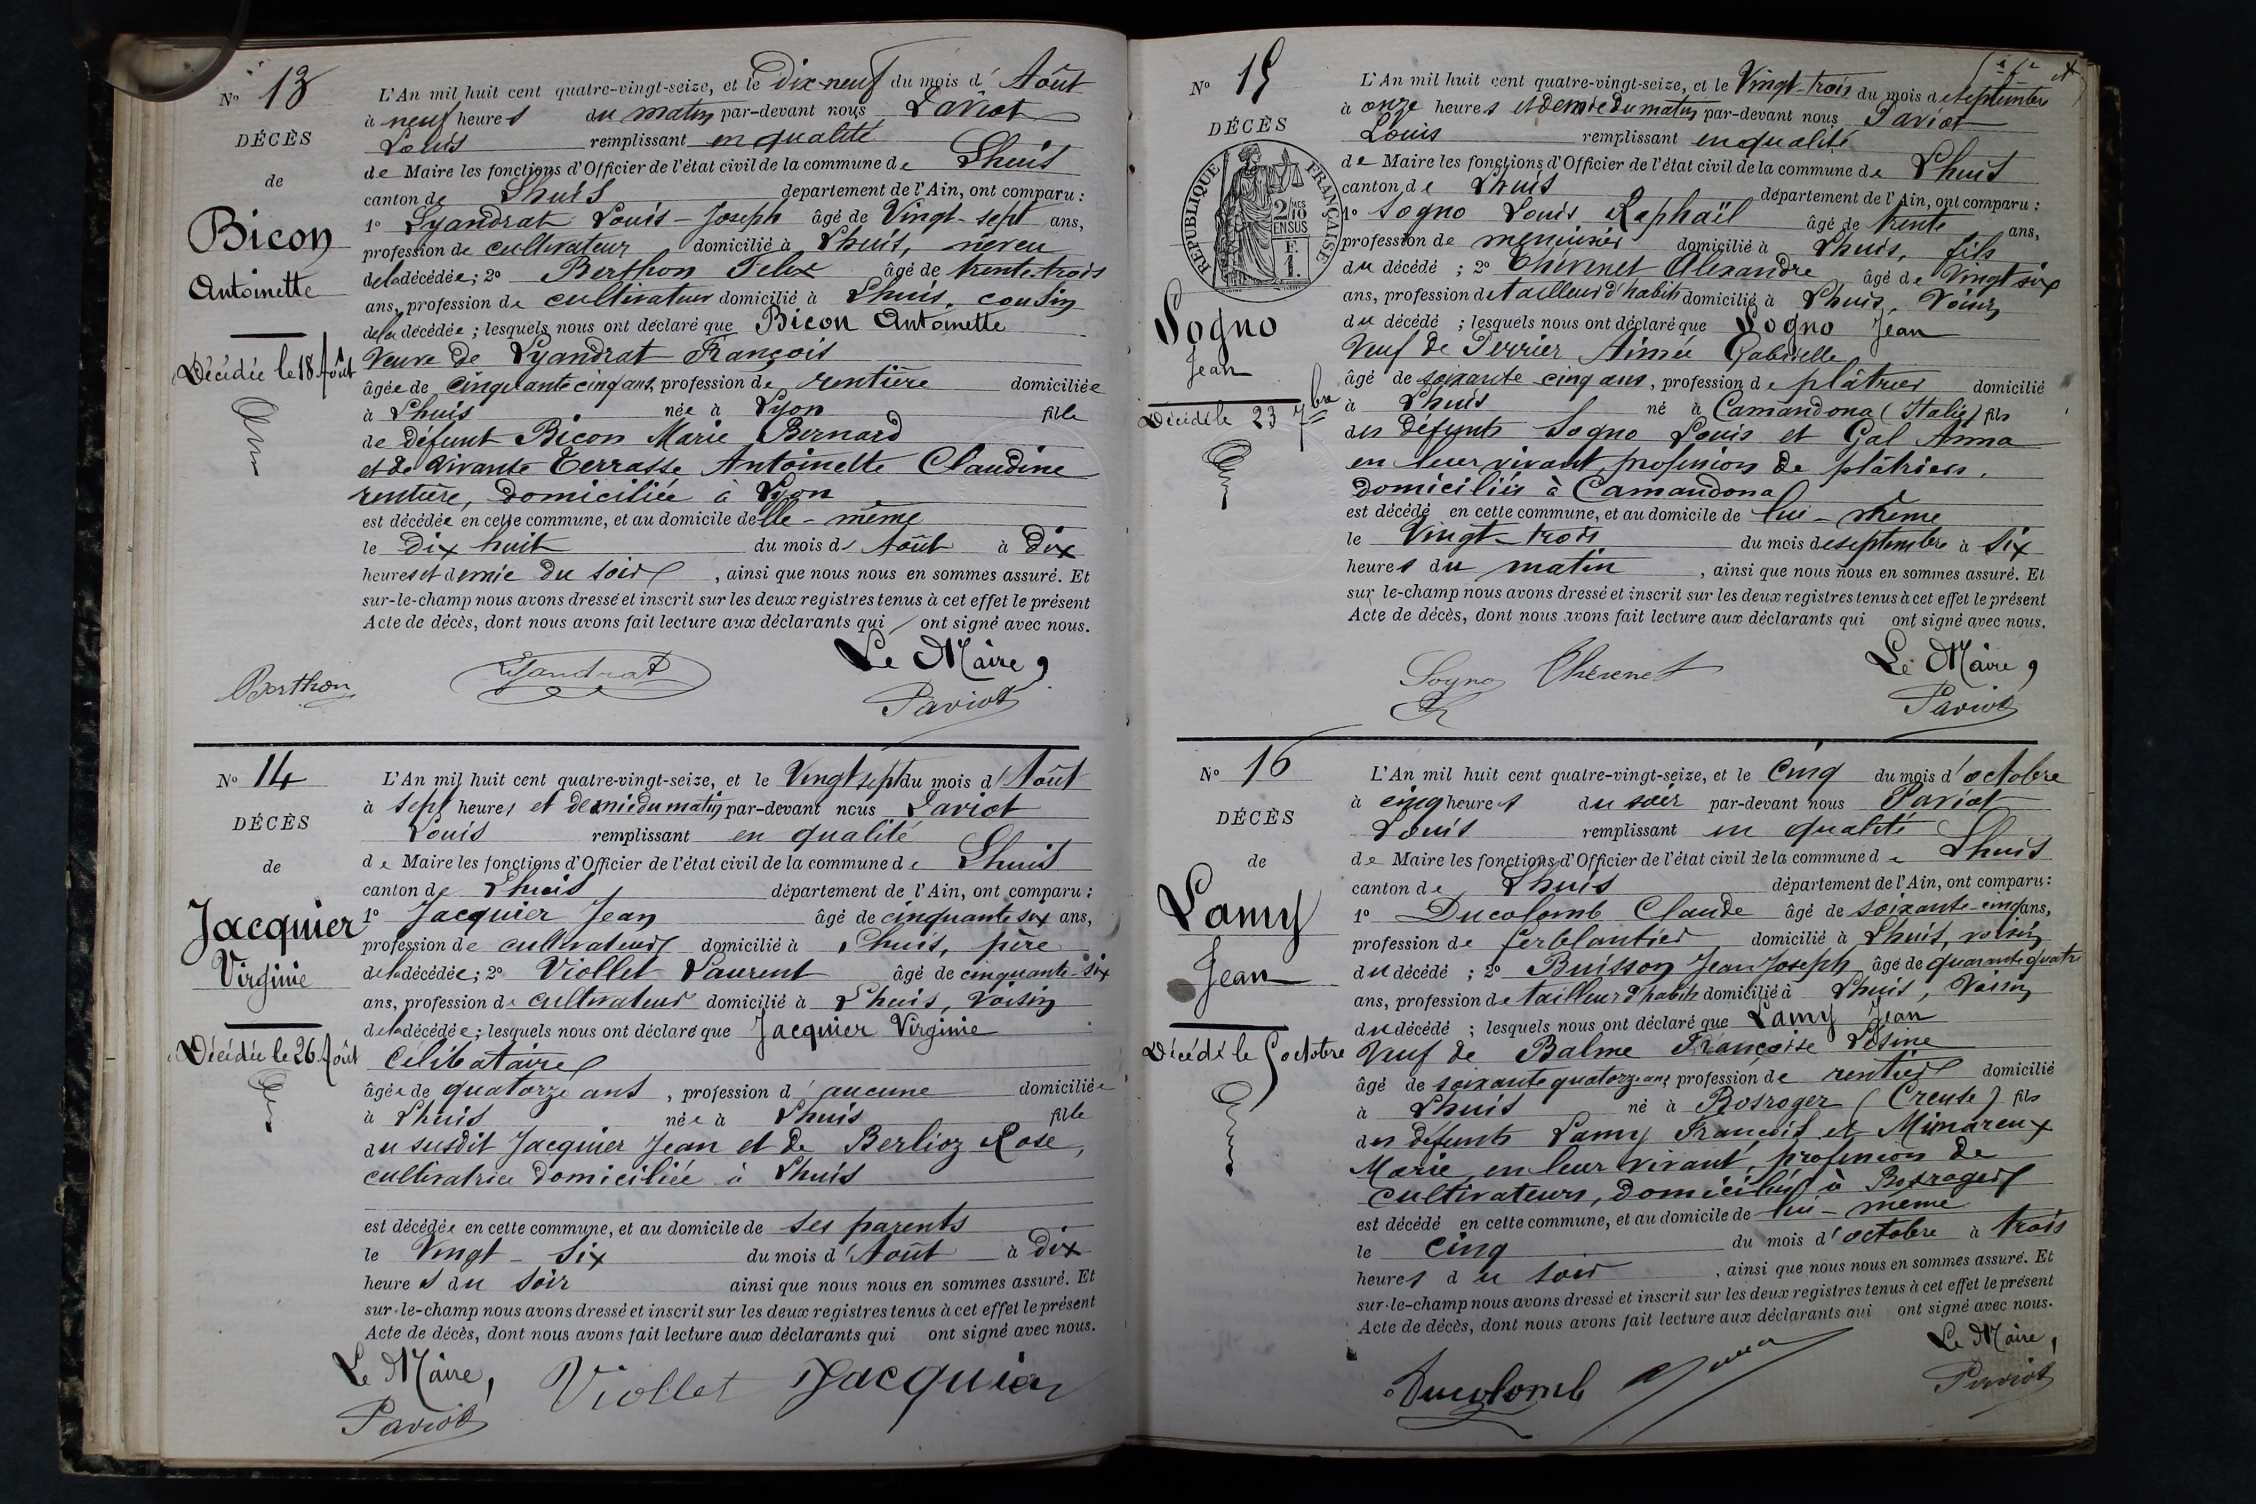 Nº 13
DÉCÈS
de
Bicon
Antoinette
Décédée le 18 Août
L'An mil huit cent quatre-vingt-seize, et le Dix-neuf du mois d'Août
à neuf heures du matin par-devant nous Paviot
Louis remplissant en qualité
de Maire les fonctions d'Officier de l'état civil de la commune de Lhuis
canton de Lhuis département de l'Ain, ont comparu :
1º Lyandrat Louis-Joseph âgé de Vingt-sept ans,
profession de cultivateur domicilié à Lhuis, neveu
de la décédée ; 2º Berthon Félix âgé de trente-trois
ans, profession de cultivateur domicilié à Lhuis, cousin
de la décédée ; lesquels nous ont déclaré que Bicon Antoinette
Veuve de Lyandrat François
âgée de cinquante cinq ans, profession de rentière domiciliée
à Lhuis née à Lyon fille
de défunt Bicon Marie Bernard
et de vivante Terrasse Antoinette Claudine
rentière, domiciliée à Lyon
est décédée en cette commune, et au domicile d'elle-même
le Dix huit du mois d'Août à Dix
heures et demie du soir, ainsi que nous nous en sommes assuré. Et
sur-le-champ nous avons dressé et inscrit sur les deux registres tenus à cet effet le présent
Acte de décès, dont nous avons fait lecture aux déclarants qui ont signé avec nous.
Le Maire,
Berthon Lyandrat Paviot
Nº 14
DÉCÈS
de
Jacquier
Virginie
Décédée le 26 Août
L'An mil huit cent quatre-vingt-seize, et le Vingt sept du mois d'Août
à sept heures et demie du matin par-devant nous Paviot
Louis remplissant en qualité
de Maire les fonctions d'Officier de l'état civil de la commune de Lhuis
canton de Lhuis département de l'Ain, ont comparu :
1º Jacquier Jean âgé de cinquante six ans,
profession de cultivateur domicilié à Lhuis, père
de la décédée ; 2º Viollet Laurent âgé de cinquante-six
ans, profession de cultivateur domicilié à Lhuis, Voisin
de la décédée ; lesquels nous ont déclaré que Jacquier Virginie
Célibataire
âgée de quatorze ans, profession d'aucune domiciliée
à Lhuis née à Lhuis fille
du susdit Jacquier Jean et de Berlioz Rose,
cultivatrice domiciliée à Lhuis
est décédée en cette commune, et au domicile de ses parents
le Vingt-six du mois d'Août à Dix
heures du soir ainsi que nous nous en sommes assuré. Et
sur-le-champ nous avons dressé et inscrit sur les deux registres tenus à cet effet le présent
Acte de décès, dont nous avons fait lecture aux déclarants qui ont signé avec nous.
Le Maire,
Paviot Viollet Jacquier
Nº 15
DÉCÈS
RÉPUBLIQUE FRANÇAISE
2/10 EN SUS
F.
1.
Sogno
Jean
Décédé le 23 7bre
L'An mil huit cent quatre-vingt-seize, et le Vingt-trois du mois de Septembre
à onze heures et demie du matin par-devant nous Paviot
Louis remplissant en qualité
de Maire les fonctions d'Officier de l'état civil de la commune de Lhuis
canton de Lhuis département de l'Ain, ont comparu :
1º Sogno Louis Raphaël âgé de trente ans,
profession de menuisier domicilié à Lhuis, fils
du décédé ; 2º Thévenet Alexandre âgé de Vingt six
ans, profession de tailleur d'habits domicilié à Lhuis, Voisin
du décédé ; lesquels nous ont déclaré que Sogno Jean
Veuf de Perrier Aimée Gabrielle
âgé de soixante cinq ans, profession de plâtrier domicilié
à Lhuis né à Camandona (Italie) fils
des défunts Sogno Louis et Gal Anna
en leur vivant, profession de plâtriers,
domiciliés à Camandona
est décédé en cette commune, et au domicile de lui-même
le Vingt-trois du mois de septembre à six
heures du matin, ainsi que nous nous en sommes assuré. Et
sur-le-champ nous avons dressé et inscrit sur les deux registres tenus à cet effet le présent
Acte de décès, dont nous avons fait lecture aux déclarants qui ont signé avec nous.
Le Maire,
Sogno Thévenet Paviot
Nº 16
DÉCÈS
de
Lamy
Jean
Décédé le 5 octobre
L'An mil huit cent quatre-vingt-seize, et le Cinq du mois d'octobre
à cinq heures du soir par-devant nous Paviot
Louis remplissant en qualité
de Maire les fonctions d'Officier de l'état civil de la commune de Lhuis
canton de Lhuis département de l'Ain, ont comparu :
1º Ducolomb Claude âgé de soixante-cinq ans,
profession de ferblantier domicilié à Lhuis, voisin
du décédé ; 2º Buisson Jean Joseph âgé de quarante quatre
ans, profession de tailleur d'habits domicilié à Lhuis, Voisin
du décédé ; lesquels nous ont déclaré que Lamy Jean
Veuf de Balme Françoise Lésine
âgé de soixante quatorze ans, profession de rentier domicilié
à Lhuis né à Bosroger (Creuse) fils
des défunts Lamy François et Mimareux
Marie, en leur vivant, profession de
cultivateurs, domiciliés à Bosroger
est décédé en cette commune, et au domicile de lui-même
le cinq du mois d'octobre à trois
heures du soir, ainsi que nous nous en sommes assuré. Et
sur-le-champ nous avons dressé et inscrit sur les deux registres tenus à cet effet le présent
Acte de décès, dont nous avons fait lecture aux déclarants qui ont signé avec nous.
Le Maire,
Ducolomb Paviot